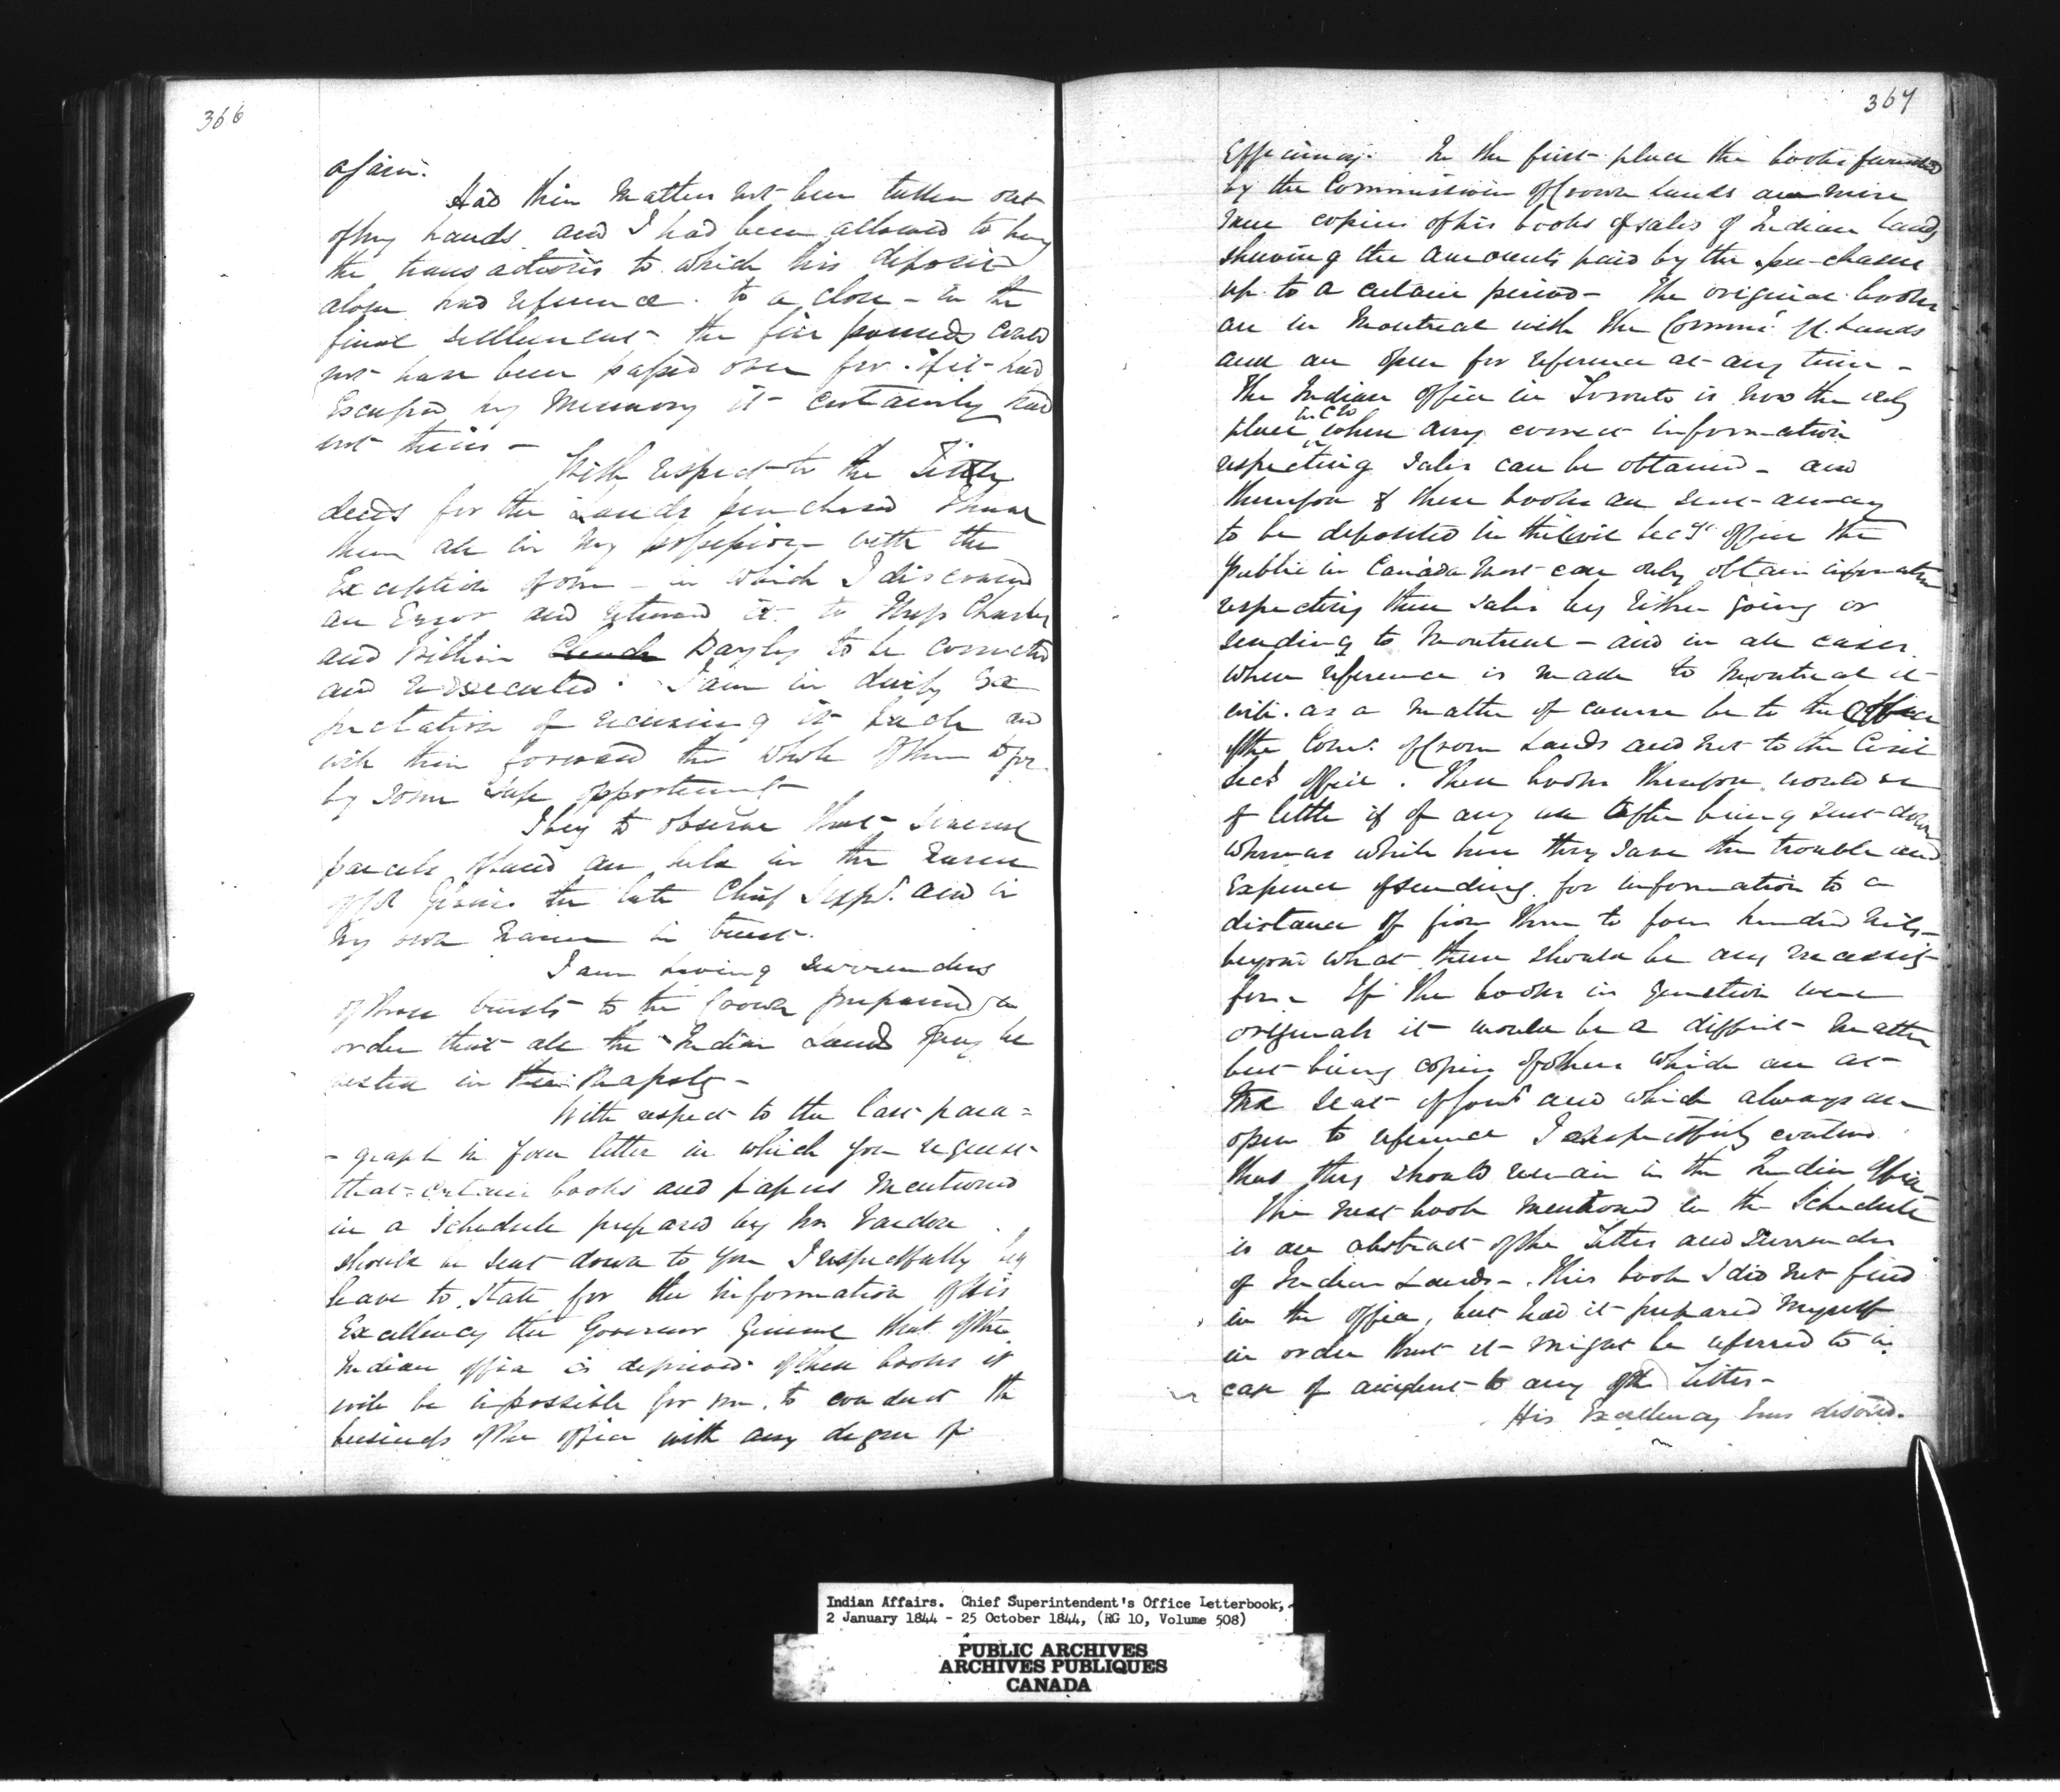 366
again.
Had this matter not been taken out
of my hands and I had been allowed to bring
the transactions to which this deposit
alone had reference to a close - in the
final settlement the five pounds could
not have been passed over for if it had
Escaped my Memory it certainly had
not theirs -
With respect to the Title
deeds for the Lands purchased I have
them all in my possession with the
Exception of one - in which I discovered
an Error and returned it to Messrs Charles
and William Dayly to be corrected
and re-executed. I am in daily Ex
pectation of receiving it back and
will then forward the whole of them to you
by some safe opportunity
I beg to observe that several
parcels of land are held in the name
of the late Chief Supt. and in
my own name in trust.
I am having surrenders
of these trusts to the Crown prepared in
order that all the Indian Lands may be
vested in Her Majesty -
With respect to the last para=
-graph in your letter in which you request
that certain books and papers mentioned
in a Schedule prepared by Mr Vardon
should be sent down to you I respectfully beg
leave to State for the information of His
Excellency the Governor General that if the
Indian office is deprived of these books it
will be impossible for me to conduct the
business of the office with any degree of
367
Efficiency. In the first place the books furnished
by the Commissioner of Crown Lands are mere
true copies of his books of sales of Indian Lands
shewing the amounts paid by the purchasers
up to a certain period - The original books
are in Montreal with the Commr. of C. Lands
and are open for reference at any time -
The Indian office in Toronto is now the only
place in C W where any correct information
respecting Sales can be obtained - and
therefore if these books are sent away
to be deposited in the Civil Secy's office the
public in Canada West can only obtain information
respecting these sales by Either going or
sending to Montreal - and in all cases
where reference is made to Montreal it
will as a matter of course be to the Office
of the Comr. of Crown Lands and not to the Civil
Secy's office. These books therefore would be
of little if of any use after being sent down
whereas while here they save the trouble and
Expence of sending for information to a
distance of from three to four hundred miles
beyond what there should be any necessity
for - If the books in question were
originals it would be a diffrt matter
but being copies of others which are at
the seat of Govt and which always are
open to reference I respectfully contend
that they should remain in the Indian Office
The next book mentioned in the Schedule
is an abstract of the Titles and Surrenders
of Indian Lands - This book I did not find
in the office, but had it prepared myself
in order that it might be referred to in
case of accident to any of the Titles -
His Excellency
Indian Affairs. Chief Superintendent's Office Letterbook,
2 January 1844 - 25 October 1844, (RG 10, Volume 508)
PUBLIC ARCHIVES
ARCHIVES PUBLIQUES
CANADA